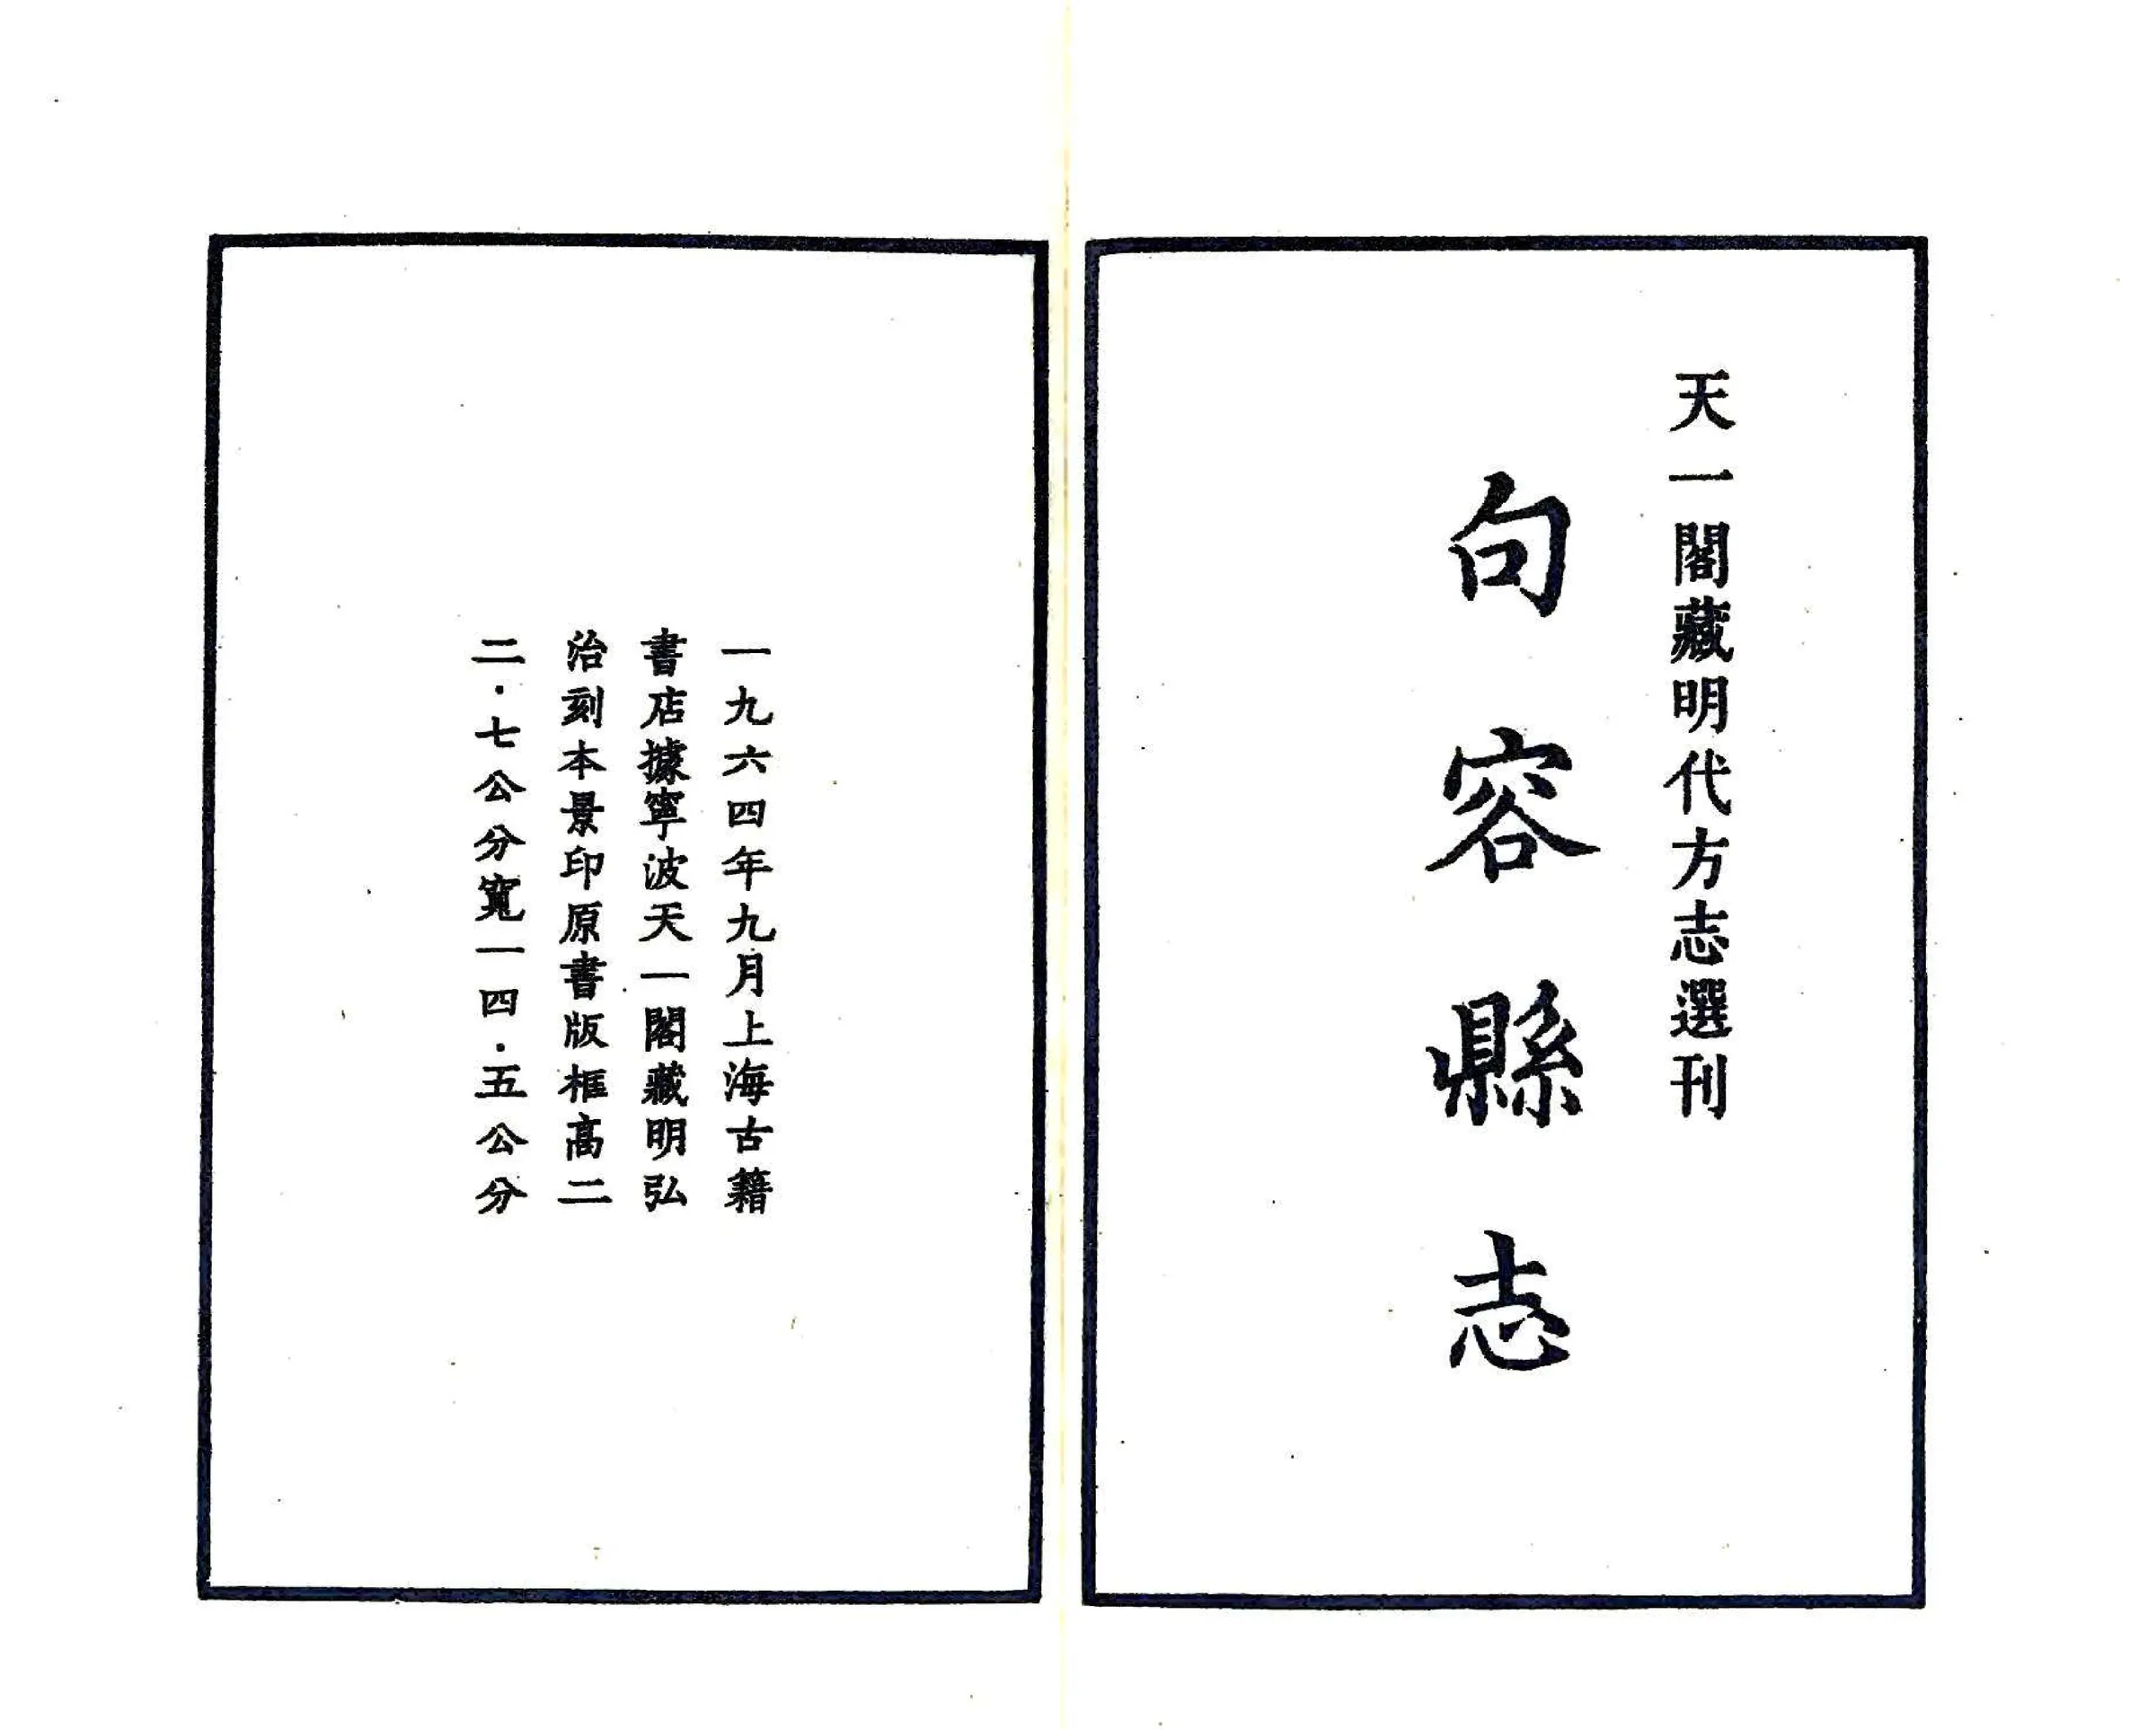 天一閣藏明代方志選刊
句容縣志
一九六四年九月上海古籍
書店據寧波天一閣藏明弘
治刻本景印原書版框高二
二·七公分寬一四·五公分